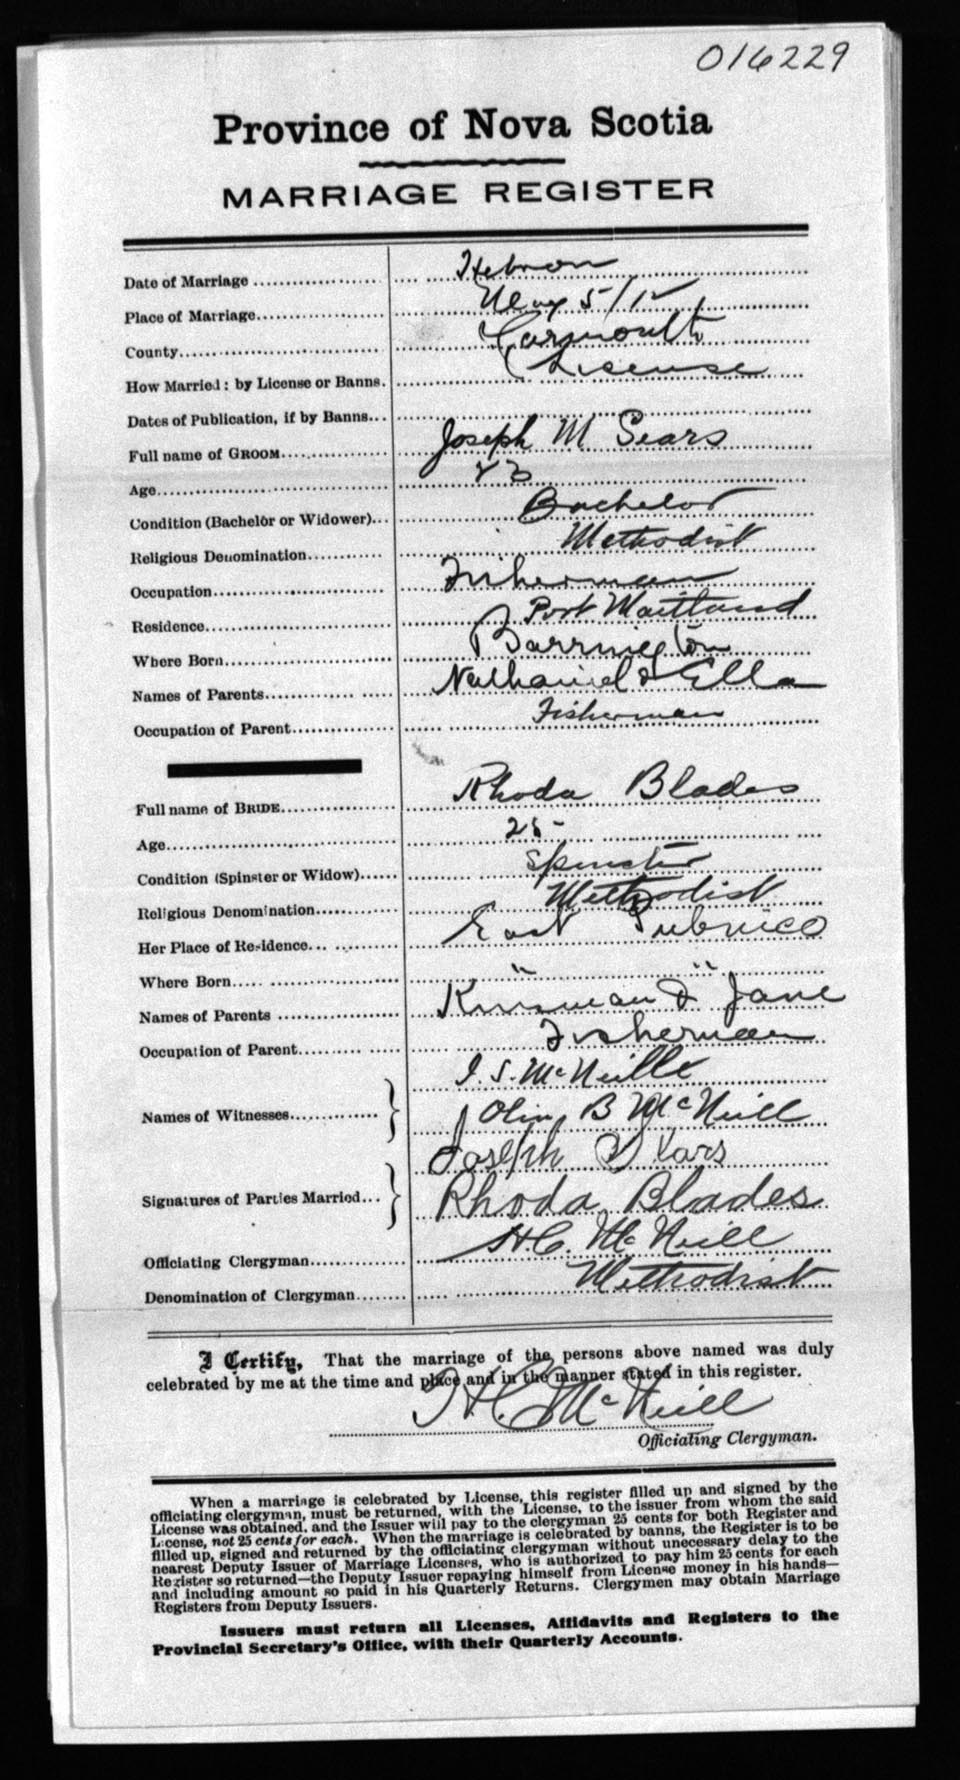 016229
Province of Nova Scotia
MARRIAGE REGISTER
Date of Marriage Hebron
Place of Marriage May 5/15
County Yarmouth
How Married: by License or Banns. License
Dates of Publication, if by Banns
Full name of GROOM Joseph M Sears
Age 23
Condition (Bachelor or Widower) Bachelor
Religious Denomination Methodist
Occupation Fisherman
Residence Port Maitland
Where Born Barrington
Names of Parents Nathaniel & Ella
Occupation of Parent Fisherman
Full name of BRIDE Rhoda Blades
Age
Condition (Spinster or Widow) Spinster
Religious Denomination Methodist
Her Place of Residence East Pubnico
Where Born " "
Names of Parents Kinsman & Jane
Occupation of Parent Fisherman
I. S. McNeille
Names of Witnesses B McNeill
Joseph Sears
Signatures of Parties Married Rhoda Blades
Officiating Clergyman H. C. McNeill
Denomination of Clergyman Methodist
I Certify, That the marriage of the persons above named was duly
celebrated by me at the time and place and in the manner stated in this register.
H. C. McNeill
Officiating Clergyman.
When a marriage is celebrated by License, this register filled up and signed by the
officiating clergyman, must be returned, with the License, to the issuer from whom the said
License was obtained. and the Issuer will pay to the clergyman 25 cents for both Register and
License, not 25 cents for each. When the marriage is celebrated by banns, the Register is to be
filled up, signed and returned by the officiating clergyman without unnecessary delay to the
nearest Deputy Issuer of Marriage Licenses, who is authorized to pay him 25 cents for each
Register so returned—the Deputy Issuer repaying himself from License money in his hands—
and including amount so paid in his Quarterly Returns. Clergymen may obtain Marriage
Registers from Deputy Issuers.
Issuers must return all Licenses, Affidavits and Registers to the
Provincial Secretary's Office, with their Quarterly Accounts.